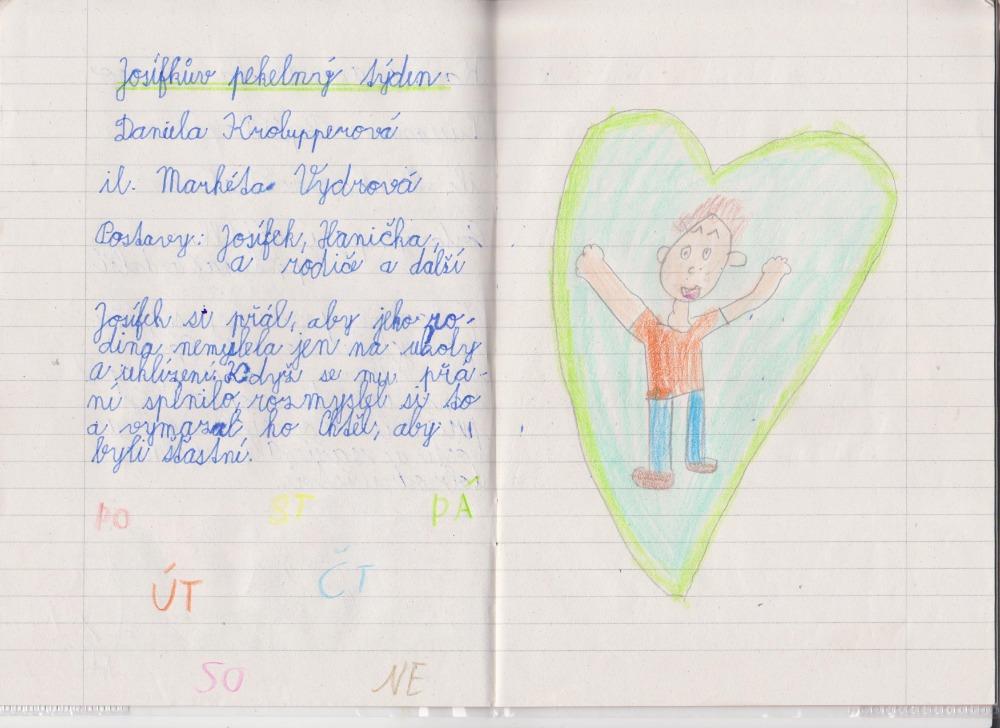 Josífkův pekelný týden
Daniela Krolupperová
il. Markéta Vydrová
Postavy: Josífek, Hanička,
a rodiče a další
Josífek si přál, aby jeho ro-
dina nemyslela jen na úkoly
a uklízení. Když se mu přá-
ní splnilo, rozmyslel si to
a vymazal ho Chtěl, aby
byli šťastní.
PO ST PÁ
ÚT ČT
SO NE